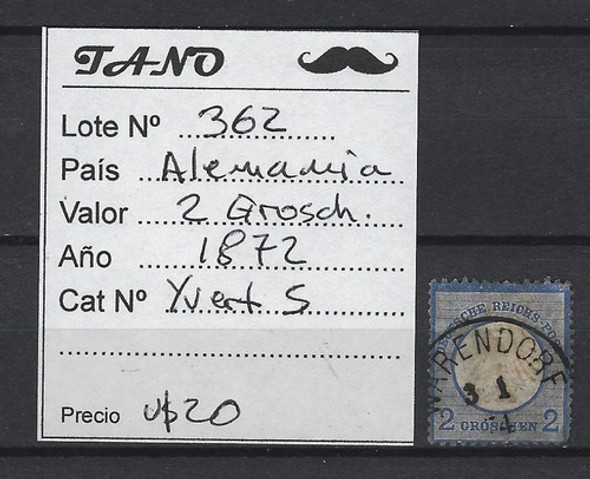 TANO
Lote Nº 362
País Alemania
Valor 2 Grosch.
Año 1872
Cat Nº Yvert 5
Precio U$20
DEUTSCHE REICHS-PO
WARENDORF
3 1
2 GROSCHEN 2